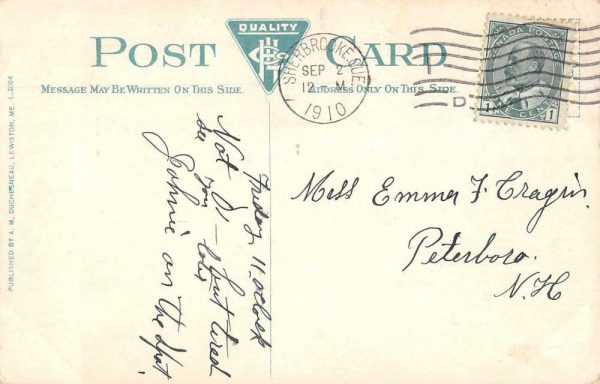 POST CARD
QUALITY
MESSAGE MAY BE WRITTEN ON THIS SIDE.
ADDRESS ONLY ON THIS SIDE.
SHERBROOKE, QUE
SEP 2
12 M
1910
CANADA POSTAGE
1 CENT 1
PUBLISHED BY A. M. DUCHESNEAU, LEWISTON, ME. L-2084
Friday 11 oclock
Not I — but tired
see you later
Johnie on the spot.
Miss Emma F. Cragin
Peterboro.
N.H